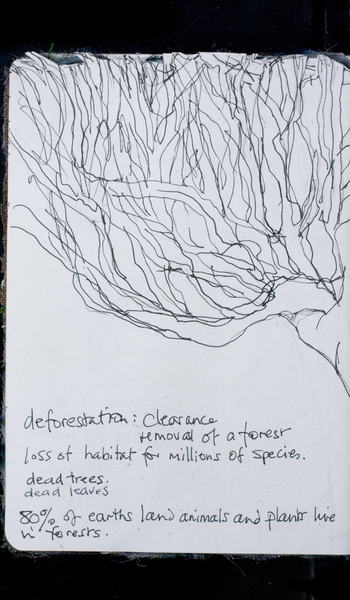 deforestation: Clearance
removal of a forest
loss of habitat for millions of species.
dead trees.
dead leaves
80% of earths land animals and plants live
in forests.